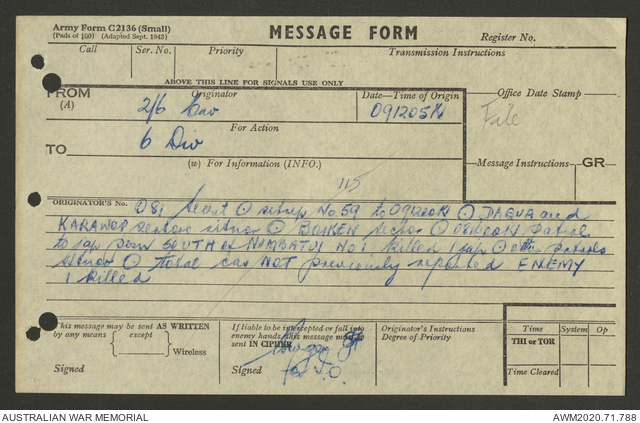 Army Form C2136 (Small)
(Pads of 100) (Adapted Sept. 1943)
MESSAGE FORM
Register No.
Call Ser. No. Priority Transmission Instructions
ABOVE THIS LINE FOR SIGNALS USE ONLY
FROM Originator Date—Time of Origin Office Date Stamp
(A) 2/6 Cav 091205K File
For Action
TO 6 Div
(W) For Information (INFO.) Message Instructions GR
115
ORIGINATOR'S No. O81 Secret ⊙ sitrep No 59 to 091200K ⊙ DAGUA and
KARAWOP sectors sitnor ⊙ BOIKEN sector ⊙ patrol
to jap SOUTH of NUMBATUI No 1 killed 1 jap ⊙ other patrols
sitnor ⊙ total cas NOT previously reported ENEMY
1 killed
This message may be sent AS WRITTEN
by any means except
Wireless
Signed
If liable to be intercepted or fall into
enemy hands, this message must be
sent IN CIPHER
Signed for I.O.
Originator's Instructions
Degree of Priority
Time System Op
THI or TOR
Time Cleared
AUSTRALIAN WAR MEMORIAL AWM2020.71.788